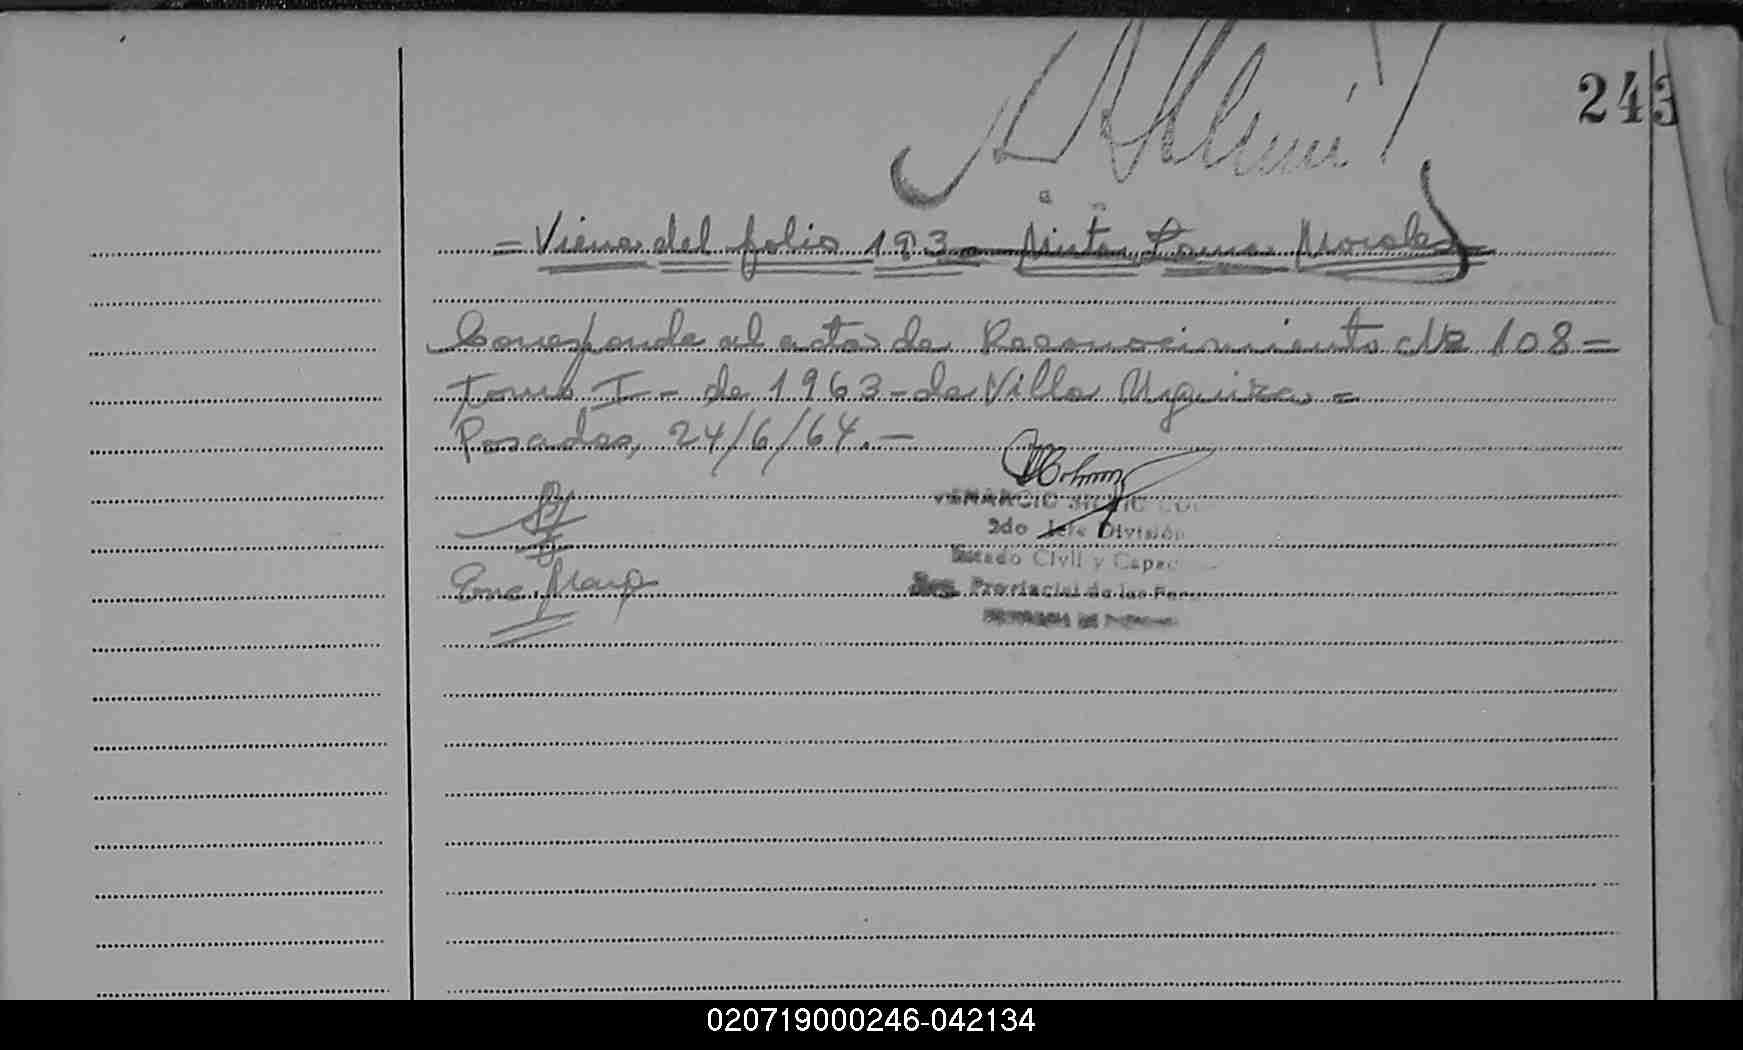 243
= Viene del folio 193 - Mirta Ramona Morales
Corresponde al acta de Reconocimiento Nº 108 =
Tomo I - de 1963 - de Villa Urquiza =
Posadas, 24/6/64. -
VENANCIO SILVIO
2do Jefe División
Estado Civil y Capac
Reg. Provincial de las Pers
020719000246-042134